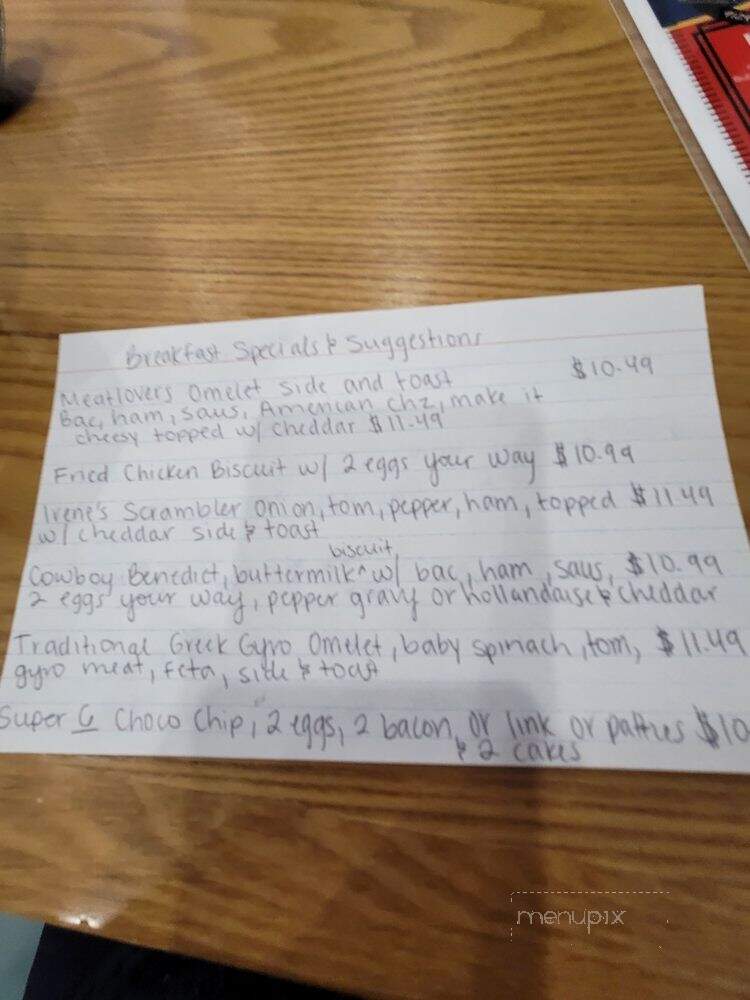 Breakfast Specials & Suggestions
Meatlovers Omelet side and toast $10.49
Bac, ham, saus, American chz, make it
cheesy topped w/ cheddar $11.49
Fried Chicken Biscuit w/ 2 eggs your way $10.99
Irene's Scrambler onion, tom, pepper, ham, topped $11.49
w/ cheddar side & toast
biscuit
Cowboy Benedict, buttermilk ^ w/ bac, ham, saus, $10.99
2 eggs your way, pepper gravy or hollandaise & cheddar
Traditional Greek Gyro Omelet, baby spinach, tom, $11.49
gyro meat, feta, side & toast
Super 6 Choco Chip, 2 eggs, 2 bacon, or link or patties $10
& 2 cakes
menupix